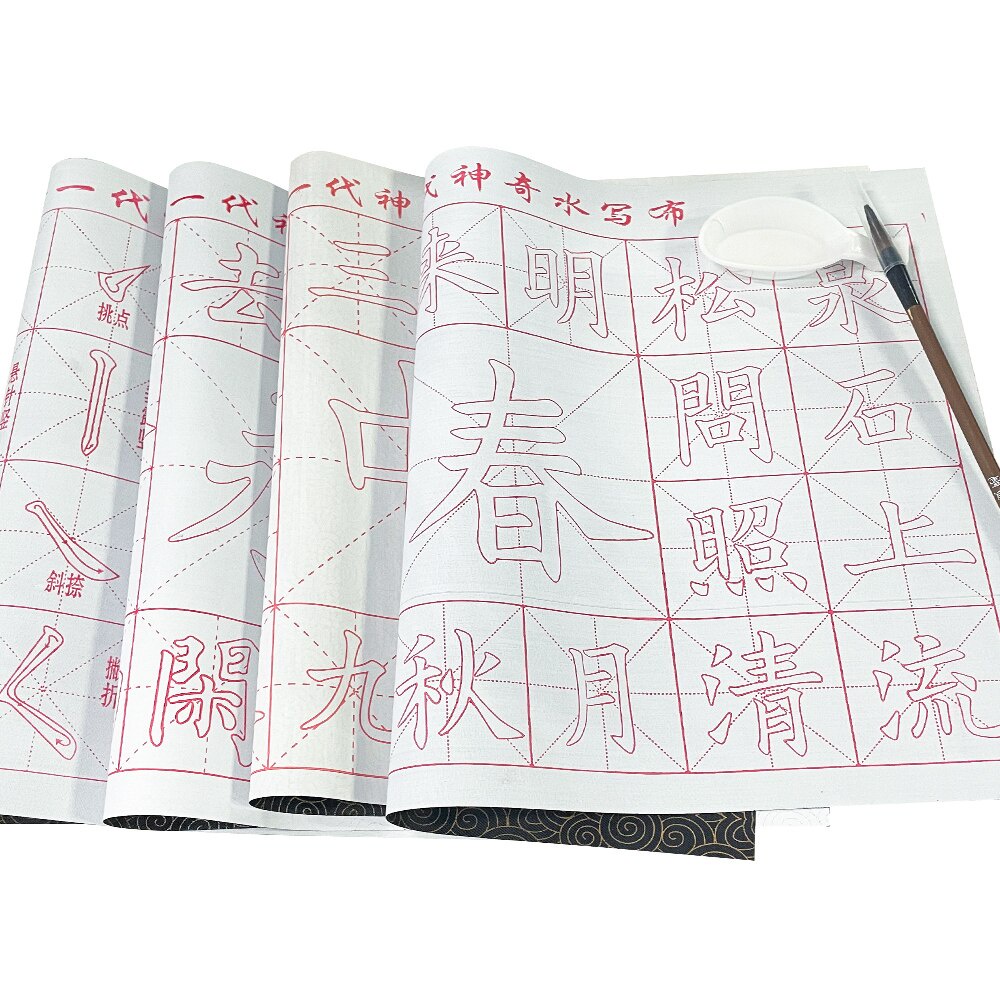 一代
挑点
悬针竖
斜捺
撇折
一代
去
閑
一代神
三
九
代神奇水写布
来明松泉
春間石
照上
秋月清流